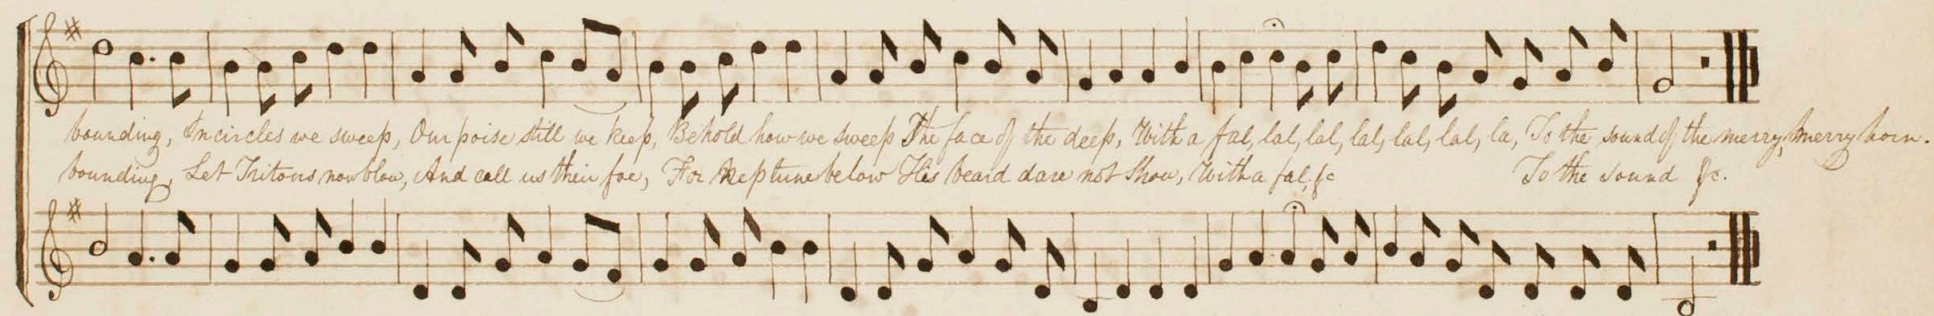 bounding, In circles we sweep, Our poise still we keep, Behold how we sweep The face of the deep, With a fal, lal, lal, lal, lal, lal, la, To the sound of the merry, merry horn.
bounding, Let Tritons now blow, And call us their foe, For Neptune below His beard dare not show, With a fal, &c To the sound &c.